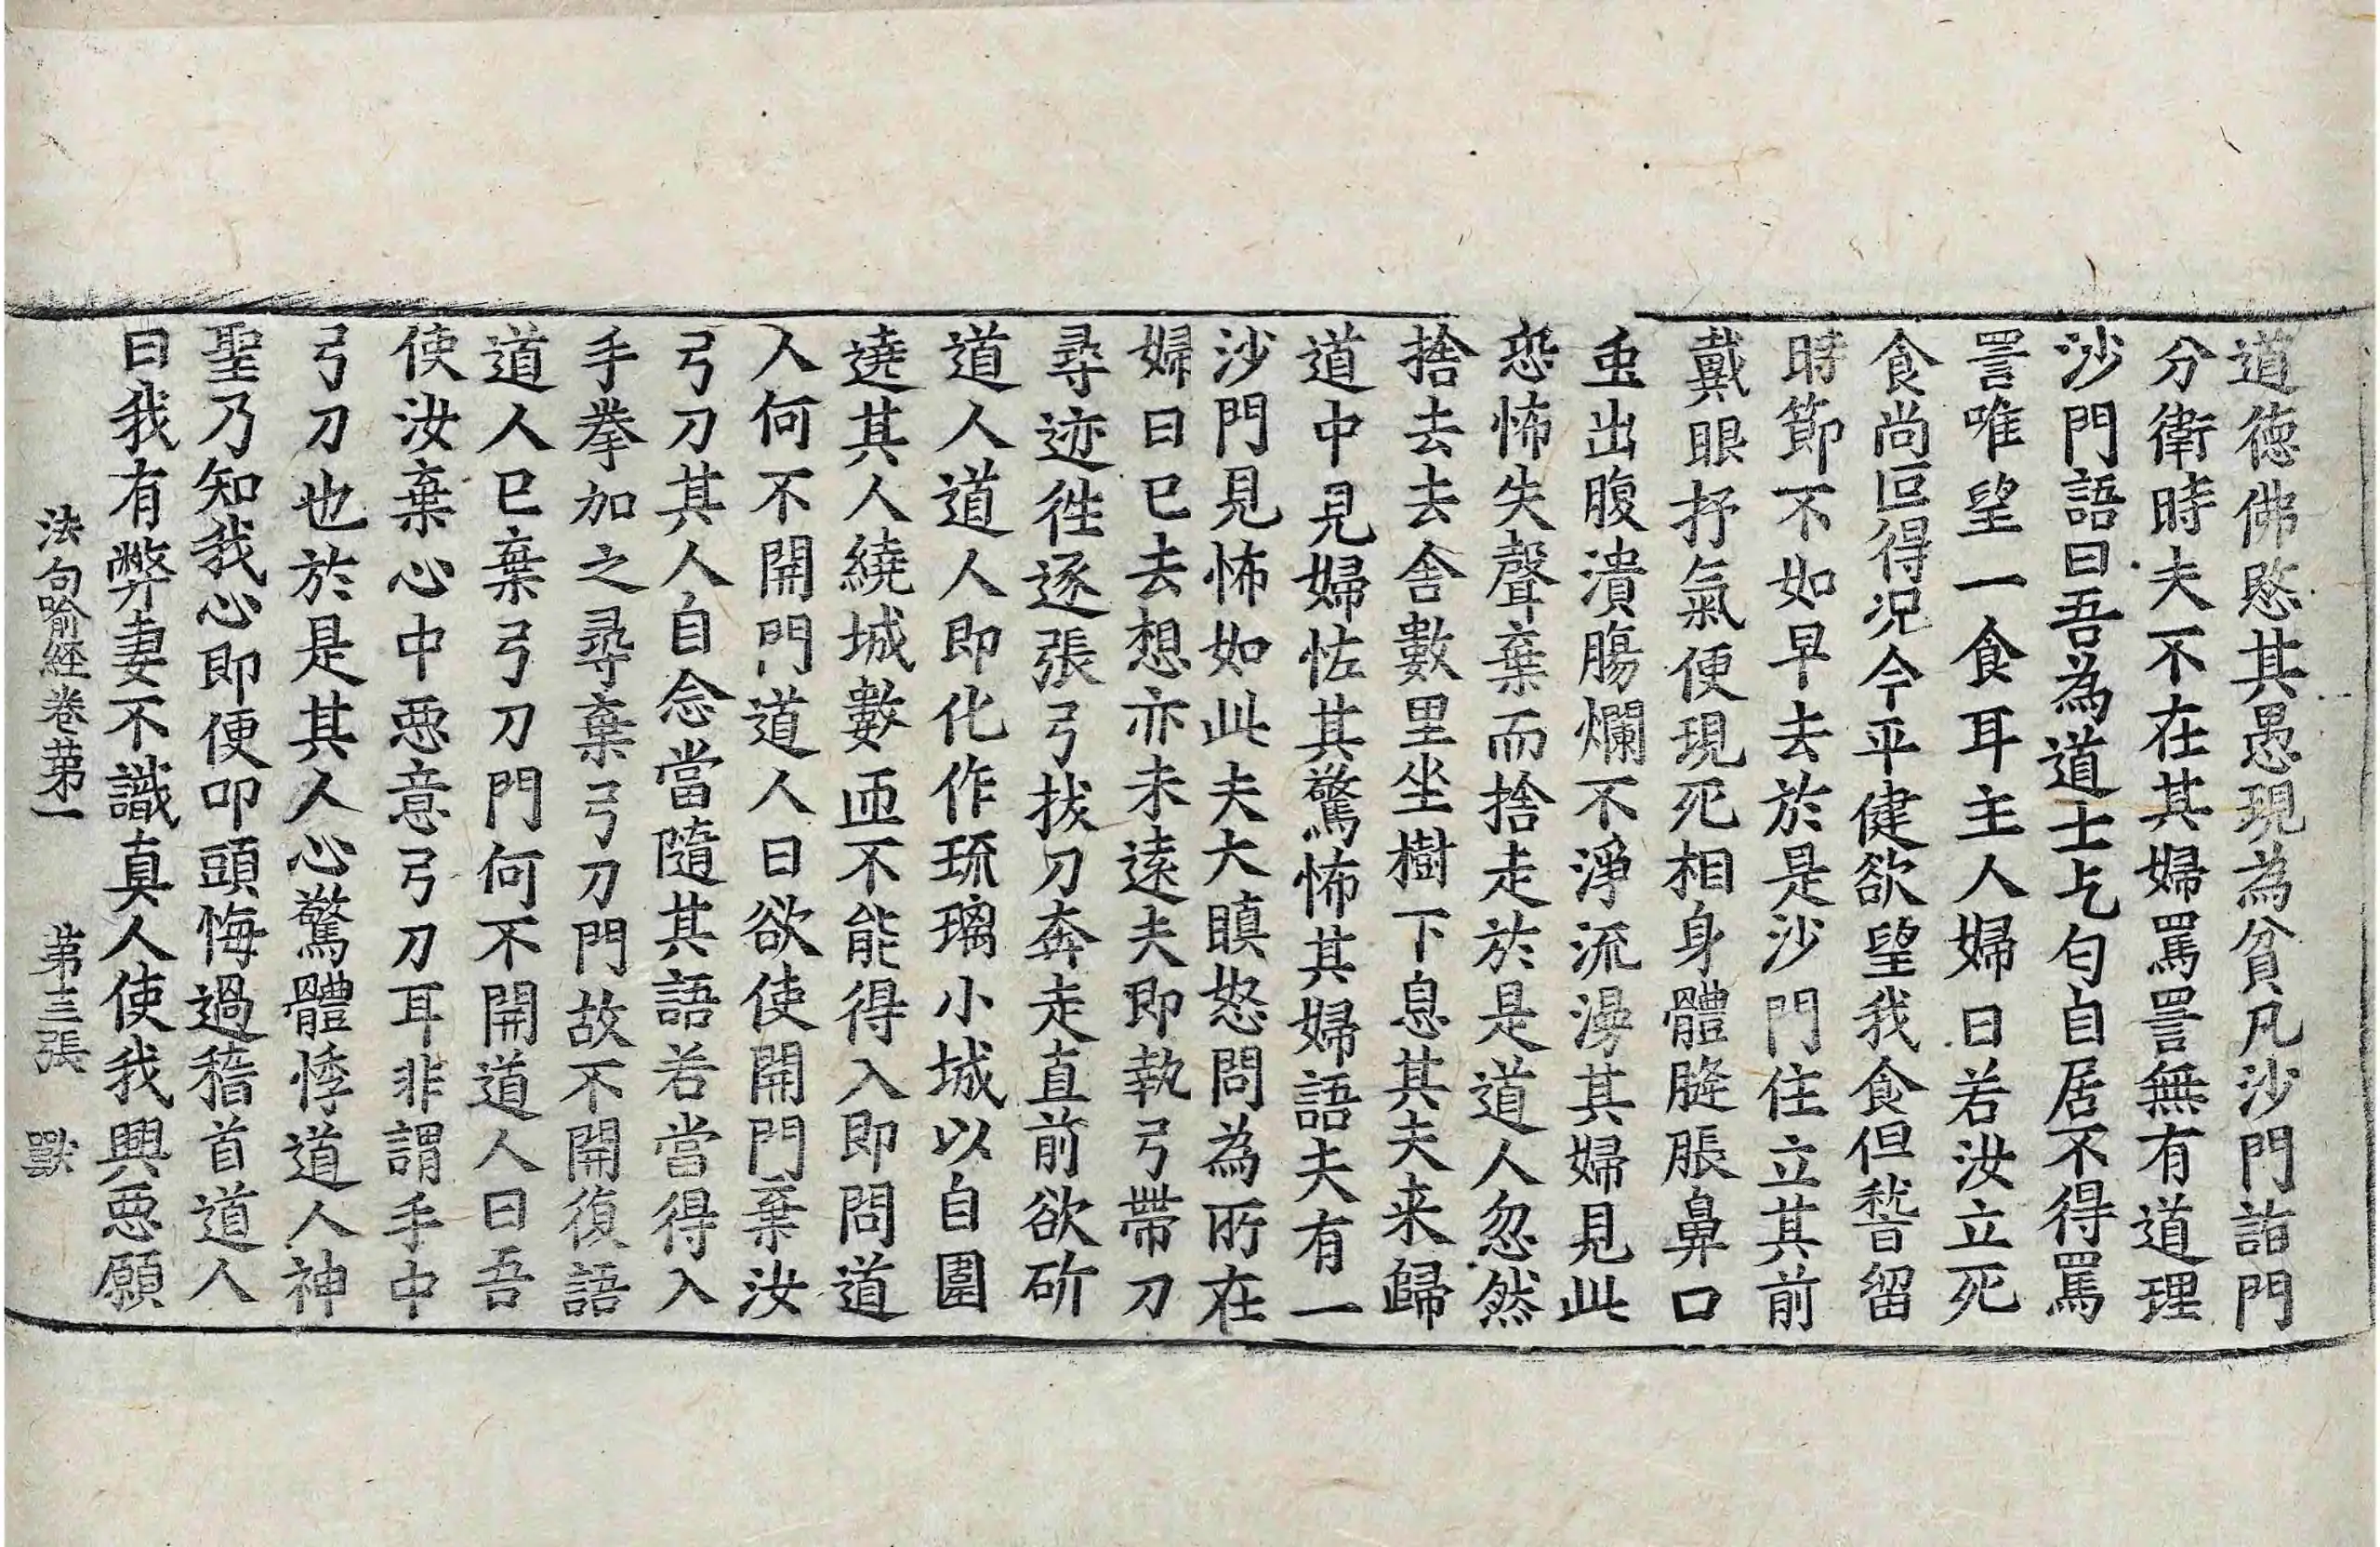 道德佛愍其愚現為貧凡沙門詣門
分衛時夫不在其婦罵詈無有道理
沙門語曰吾為道士乞匂自居不得罵
詈唯望一食耳主人婦曰若汝立死
食尚叵得況今平健欲望我食但稽留
時節不如早去於是沙門住立其前
戴眼抒氣便現死相身體膖脹鼻口
虫出腹潰腸爛不淨流漫其婦見此
恐怖失聲棄而捨走於是道人忽然
捨去去舍數里坐樹下息其夫来歸
道中見婦怪其驚怖其婦語夫有一
沙門見怖如此夫大瞋怒問為所在
婦曰已去想亦未遠夫即執弓帶刀
尋迹徃逐張弓拔刀奔走直前欲斫
道人道人即化作琉璃小城以自圍
遶其人繞城數匝不能得入即問道
人何不開門道人曰欲使開門棄汝
弓刀其人自念當隨其語若當得入
手拳加之尋棄弓刀門故不開復語
道人已棄弓刀門何不開道人曰吾
使汝棄心中惡意弓刀耳非謂手中
弓刀也於是其人心驚體悸道人神
聖乃知我心即便叩頭悔過稽首道人
曰我有弊妻不識真人使我興惡願
法句喻經卷第一 第三張 獸